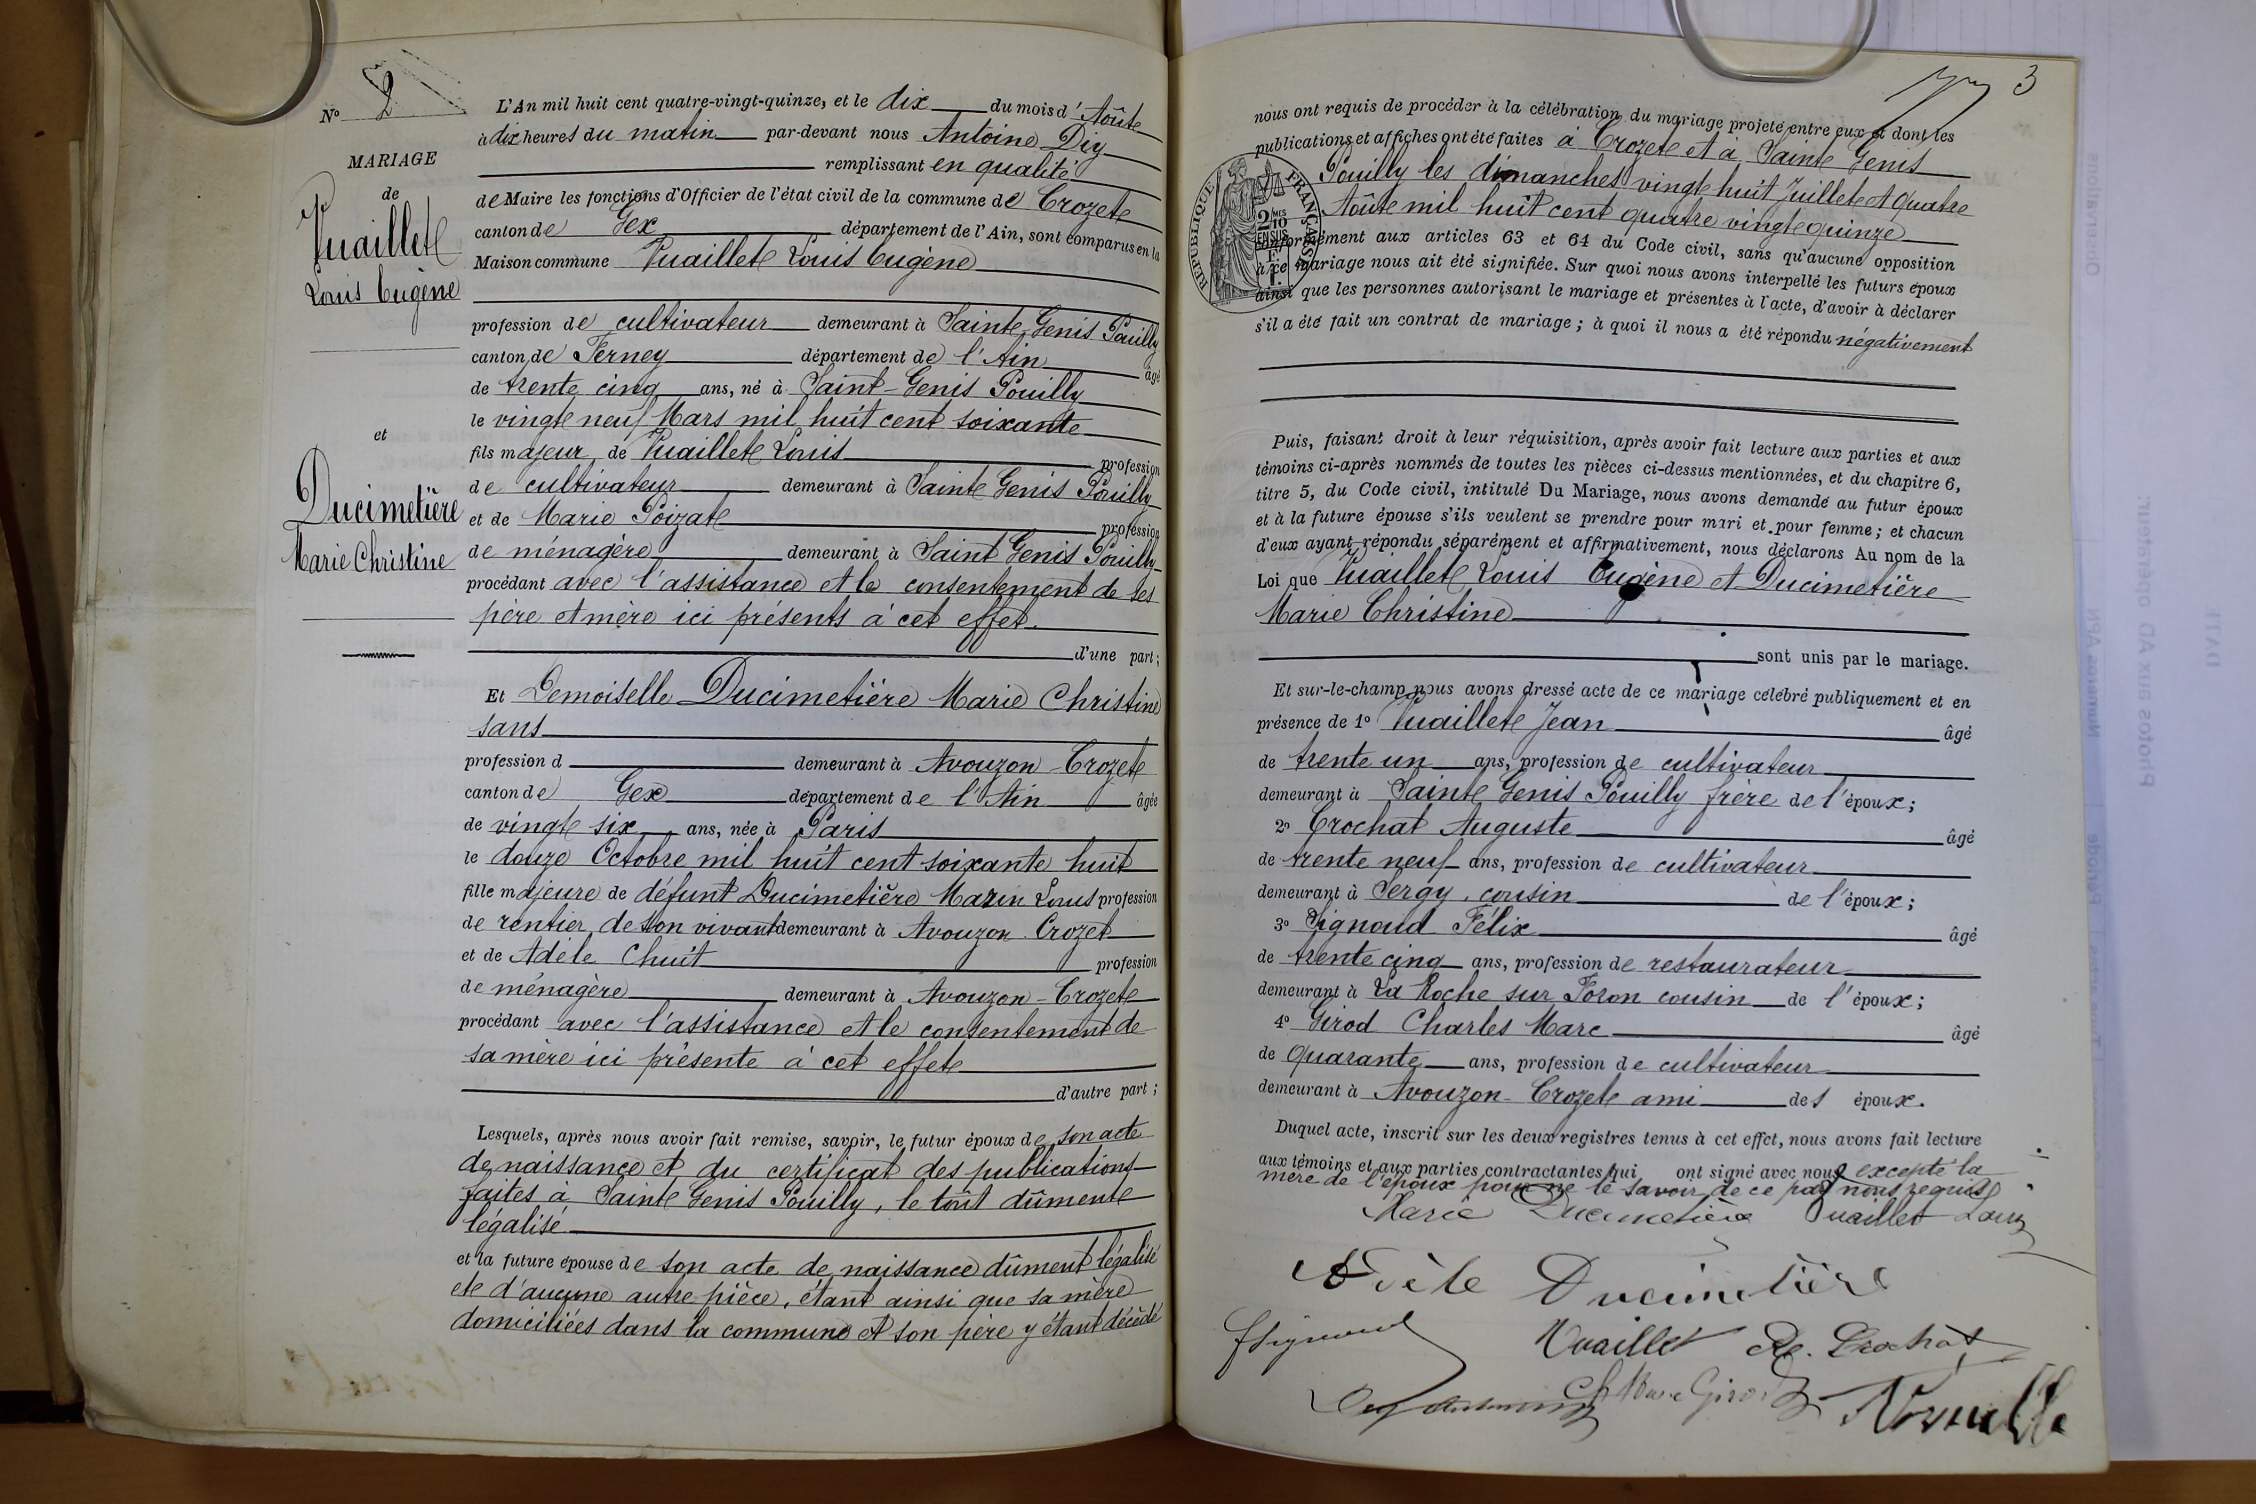 No 2
MARIAGE
de
Vuaillet
Louis Eugène
et
Ducimetière
Marie Christine
L'An mil huit cent quatre-vingt-quinze, et le dix du mois d' Août
à dix heures du matin par-devant nous Antoine Dig
remplissant en qualité
de Maire les fonctions d'Officier de l'état civil de la commune de Crozet
canton de Gex département de l'Ain, sont comparus en la
Maison commune Vuaillet Louis Eugène
profession de cultivateur demeurant à Saint Genis Pouilly
canton de Ferney département de l'Ain âgé
de trente cinq ans, né à Saint-Genis Pouilly
le vingt neuf Mars mil huit cent soixante
fils majeur de Vuaillet Louis profession
de cultivateur demeurant à Saint Genis Pouilly
et de Marie Poizat profession
de ménagère demeurant à Saint Genis Pouilly
procédant avec l'assistance et le consentement de ses
père et mère ici présents à cet effet.
d'une part ;
Et Demoiselle Ducimetière Marie Christine
sans
profession d demeurant à Avouzon Crozet
canton de Gex département de l'Ain âgée
de vingt six ans, née à Paris
le douze Octobre mil huit cent soixante huit
fille majeure de défunt Ducimetière Marin Louis profession
de rentier de son vivant demeurant à Avouzon Crozet
et de Adèle Chuit profession
de ménagère demeurant à Avouzon-Crozet
procédant avec l'assistance et le consentement de
sa mère ici présente à cet effet
d'autre part ;
Lesquels, après nous avoir fait remise, savoir, le futur époux de son acte
de naissance et du certificat des publications
faites à Saint Genis Pouilly, le tout dûment
légalisé
et la future épouse de son acte de naissance dûment légalisé
et d'aucune autre pièce, étant ainsi que sa mère
domiciliées dans la commune et son père y étant décédé
3
nous ont requis de procéder à la célébration du mariage projeté entre eux et dont les
publications et affiches ont été faites à Crozet et à Saint Genis
Pouilly les dimanches vingt huit Juillet et quatre
Août mil huit cent quatre vingt quinze
conformément aux articles 63 et 64 du Code civil, sans qu'aucune opposition
à ce mariage nous ait été signifiée. Sur quoi nous avons interpellé les futurs époux
ainsi que les personnes autorisant le mariage et présentes à l'acte, d'avoir à déclarer
s'il a été fait un contrat de mariage ; à quoi il nous a été répondu négativement
RÉPUBLIQUE FRANÇAISE
Puis, faisant droit à leur réquisition, après avoir fait lecture aux parties et aux
témoins ci-après nommés de toutes les pièces ci-dessus mentionnées, et du chapitre 6,
titre 5, du Code civil, intitulé Du Mariage, nous avons demandé au futur époux
et à la future épouse s'ils veulent se prendre pour mari et pour femme ; et chacun
d'eux ayant répondu séparément et affirmativement, nous déclarons Au nom de la
Loi que Vuaillet Louis Eugène et Ducimetière
Marie Christine
sont unis par le mariage.
Et sur-le-champ nous avons dressé acte de ce mariage célébré publiquement et en
présence de 1o Vuaillet Jean âgé
de trente un ans, profession de cultivateur
demeurant à Saint Genis Pouilly frère de l'époux ;
2o Crochat Auguste âgé
de trente neuf ans, profession de cultivateur
demeurant à Sergy, cousin de l'époux ;
3o Signoud Félix âgé
de trente cinq ans, profession de restaurateur
demeurant à La Roche sur Foron cousin de l'époux ;
4o Girod Charles Marc âgé
de quarante ans, profession de cultivateur
demeurant à Avouzon-Crozet ami des époux.
Duquel acte, inscrit sur les deux registres tenus à cet effet, nous avons fait lecture
aux témoins et aux parties contractantes qui ont signé avec nous excepté la
mère de l'époux pour ne le savoir, de ce par nous requise
Marie Ducimetière Vuaillet Louis
Adèle Ducimetière
FSignoud Vuaillet Crochat
Ch Marc Girod